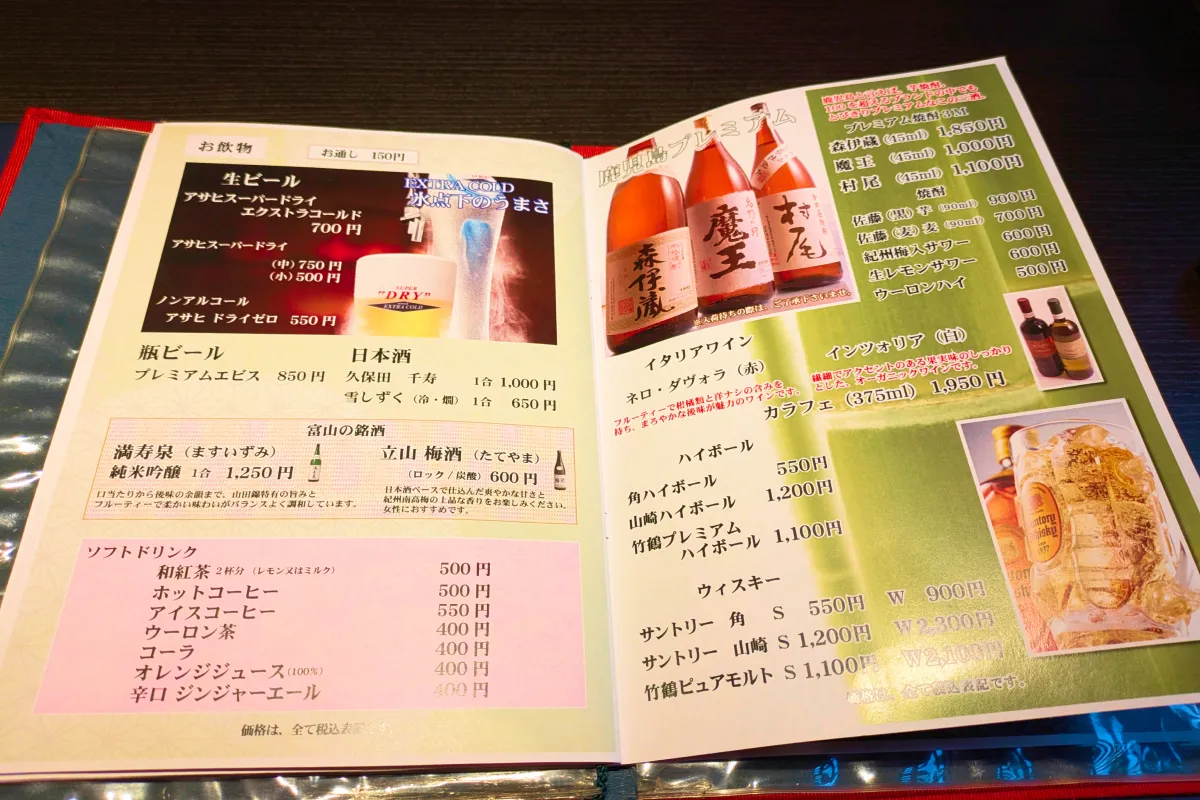 お飲物
お通し 150円
生ビール
アサヒスーパードライ
エクストラコールド
700円
アサヒスーパードライ
(中) 750円
(小) 500円
ノンアルコール
アサヒ ドライゼロ 550円
EXTRA COLD
氷点下のうまさ
SUPER
"DRY"
EXTRA COLD
瓶ビール
プレミアムエビス 850円
日本酒
久保田 千寿 1合 1,000円
雪しずく(冷・燗) 1合 650円
富山の銘酒
満寿泉(ますいずみ)
純米吟醸 1合 1,250円
口当たりから後味の余韻まで、山田錦特有の旨みと
フルーティーで柔かい味わいがバランスよく調和しています。
立山 梅酒(たてやま)
(ロック/炭酸) 600円
日本酒ベースで仕込んだ爽やかな甘さと
紀州南高梅の上品な香りをお楽しみください。
女性におすすめです。
ソフトドリンク
和紅茶 2杯分 (レモン又はミルク) 500円
ホットコーヒー 500円
アイスコーヒー 550円
ウーロン茶 400円
コーラ 400円
オレンジジュース(100%) 400円
辛口 ジンジャーエール 400円
価格は、全て税込表記
鹿児島プレミアム
森伊蔵
魔王
村尾
※入荷待ちの際は、ご了承下さいませ。
鹿児島と言えば、芋焼酎。
100を超えるブランドの中でも
とびきりプレミアムなこの三酒。
プレミアム焼酎3M
森伊蔵(45ml) 1,850円
魔王 (45ml) 1,000円
村尾 (45ml) 1,100円
焼酎
佐藤(黒)芋(90ml) 900円
佐藤(麦)麦(90ml) 700円
紀州梅入サワー 600円
生レモンサワー 600円
ウーロンハイ 500円
イタリアワイン
ネロ・ダヴォラ(赤)
フルーティーで柑橘類と洋ナシの含みを
持ち、まろやかな後味が魅力のワインです。
インツォリア(白)
繊細でアクセントのある果実味のしっかり
とした、オーガニックワインです。
カラフェ(375ml) 1,950円
ハイボール
角ハイボール 550円
山崎ハイボール 1,200円
竹鶴プレミアム
ハイボール 1,100円
ウィスキー
サントリー 角 S 550円 W 900円
サントリー 山崎 S 1,200円 W 2,300円
竹鶴ピュアモルト S 1,100円 W 2,100円
価格は、全て税込表記です。
Suntory
Whisky